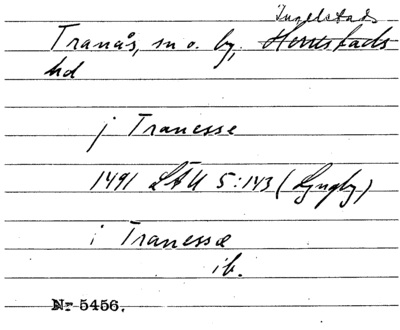 Ingelstads
Tranås, sn o. by, Herrestads
hd
j Tranesse
1491 LÄU 5:143 (Ljngby)
i Tranessæ
ib.
Nr 5456.